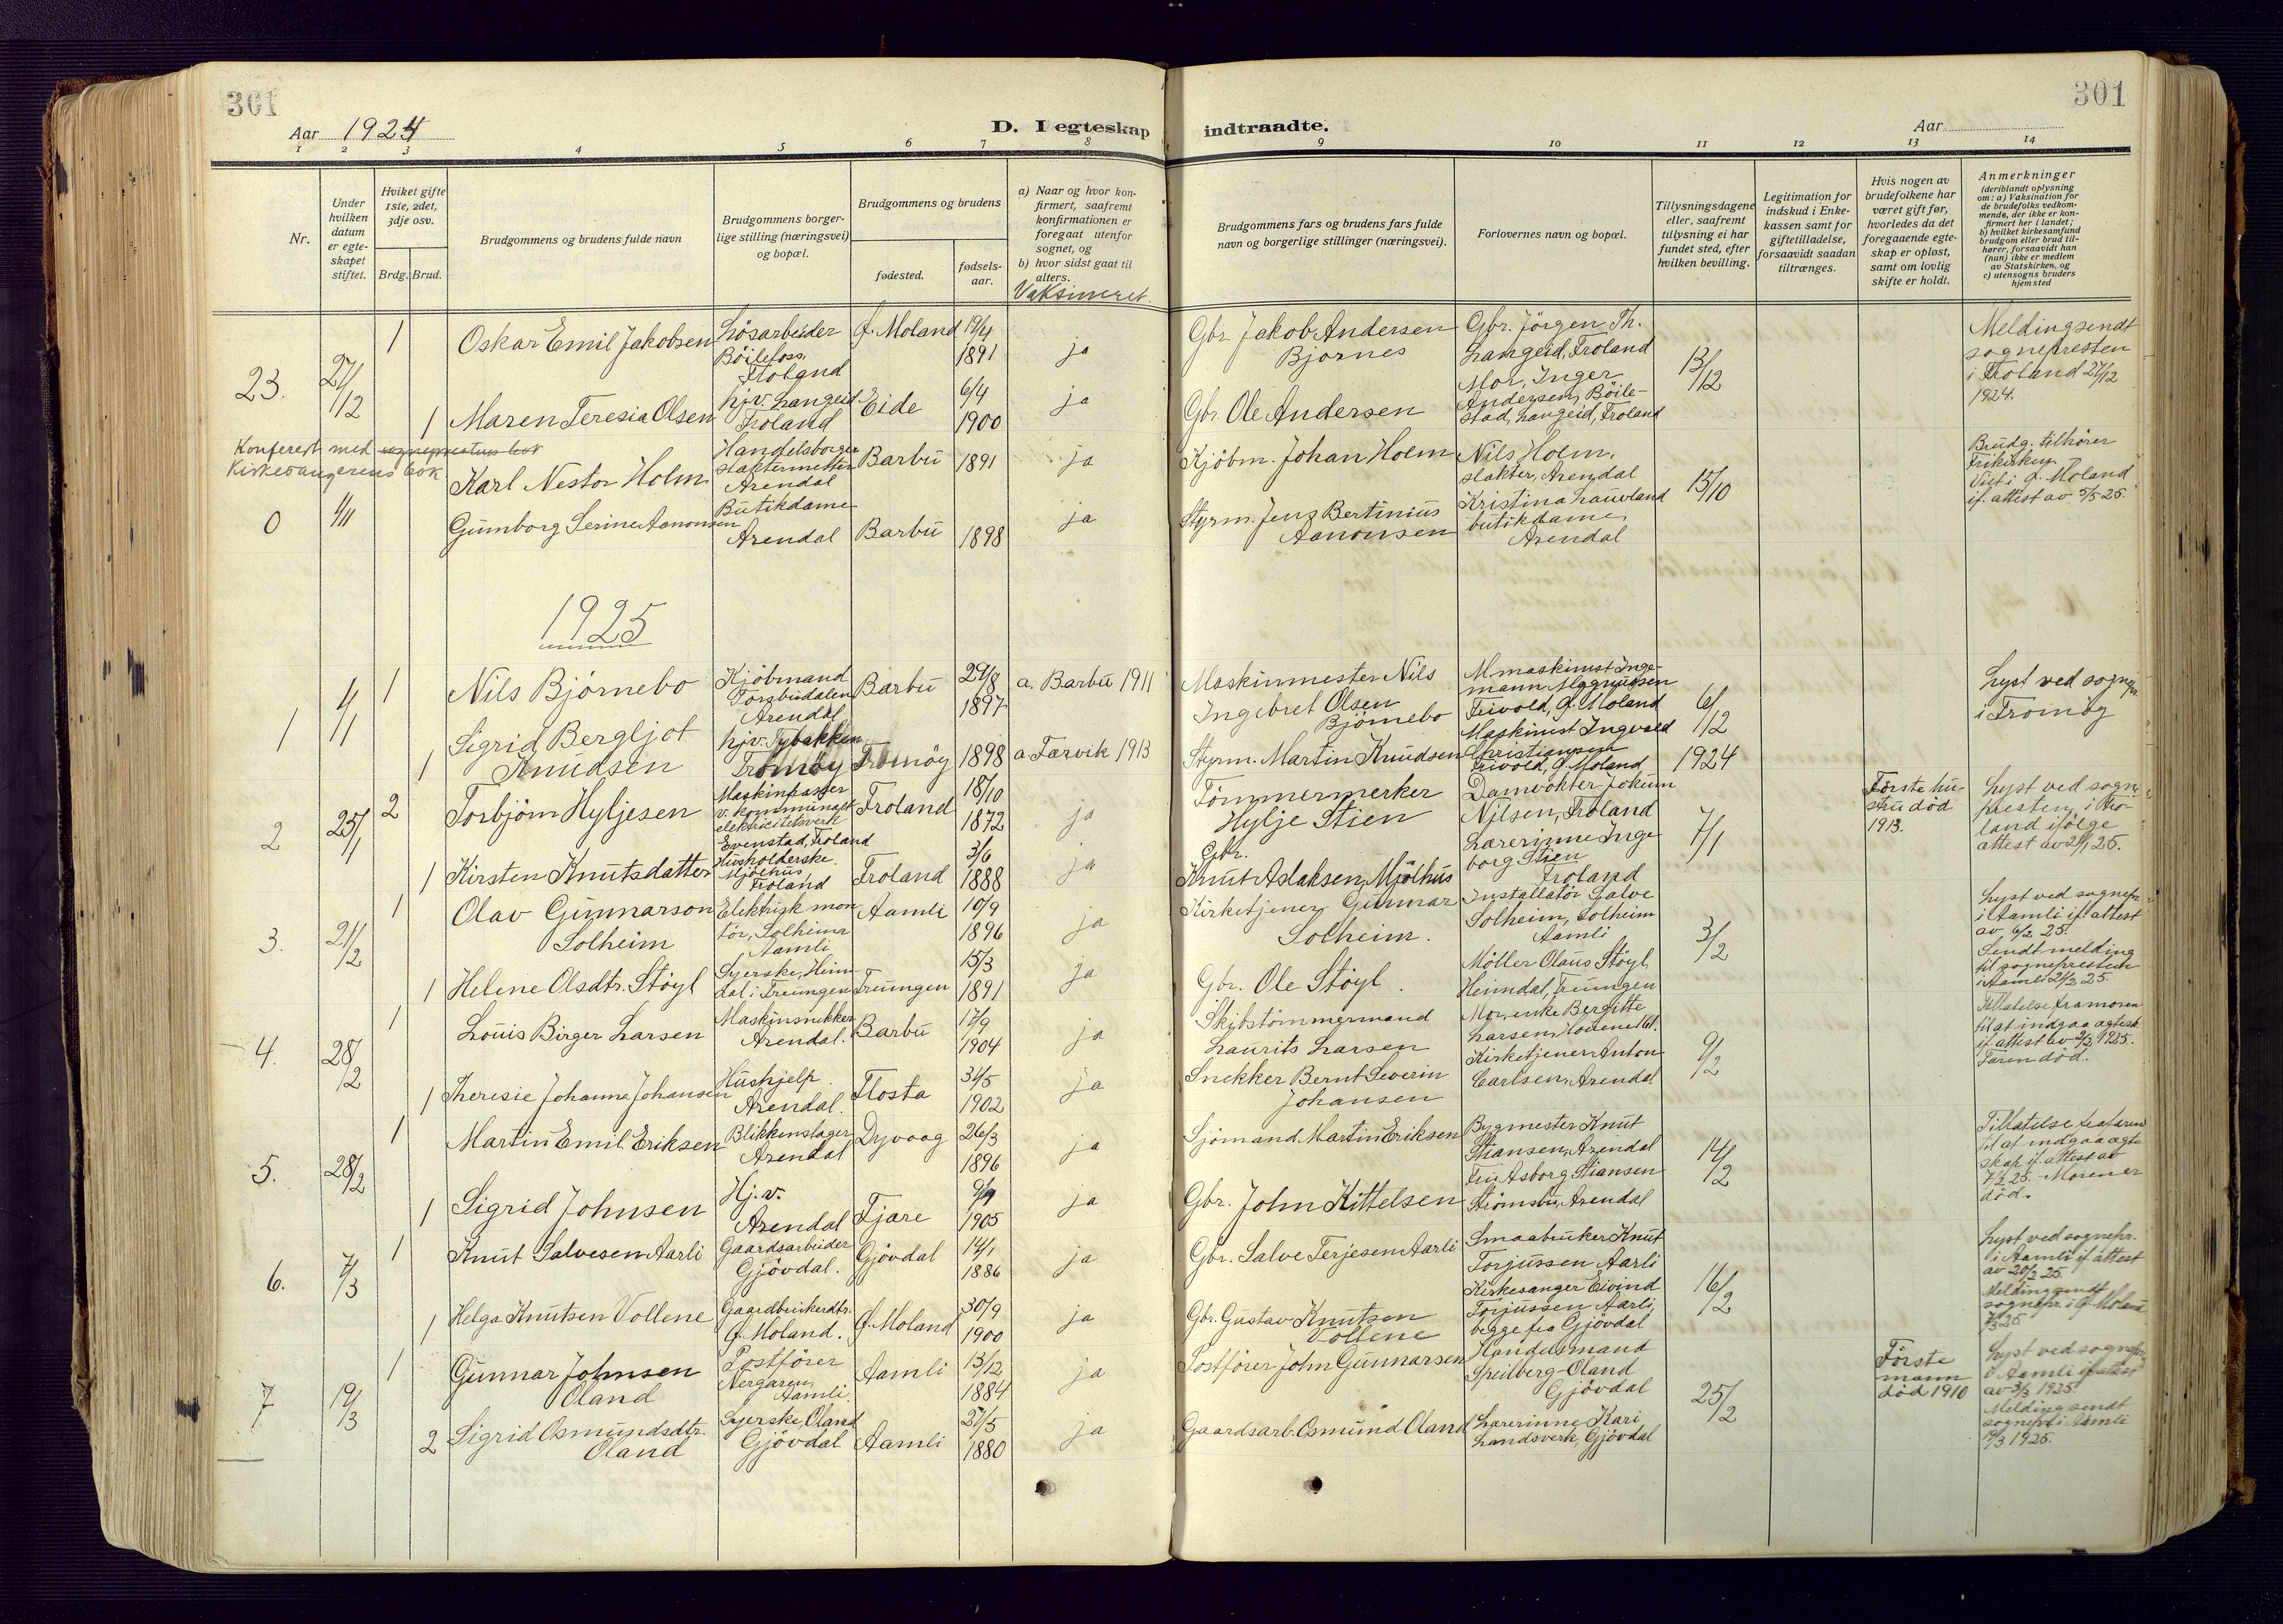 301
301
Aar 1924
D. I egteskap indtraadte.
Aar
1 2 3 4 5 6 7 8 9 10 11 12 13 14
Nr.
Under hvilken datum er egteskapet stiftet.
Hviket gifte 1ste, 2det, 3dje osv.
Brdg. Brud.
Brudgommens og brudens fulde navn
Brudgommens borgerlige stilling (næringsvei) og bopæl.
Brudgommens og brudens
fødested.
fødselsaar.
a) Naar og hvor konfirmert, saafremt konfirmationen er foregaat utenfor sognet, og
b) hvor sidst gaat til alters.
Vaksineret.
Brudgommens fars og brudens fars fulde navn og borgerlige stillinger (næringsvei).
Forlovernes navn og bopæl.
Tillysningsdagene eller, saafremt tillysning ei har fundet sted, efter hvilken bevilling.
Legitimation for indskud i Enkekassen samt for giftetilladelse, forsaavidt saadan tiltrænges.
Hvis nogen av brudefolkene har været gift før, hvorledes da det foregaaende egteskap er opløst, samt om lovlig skifte er holdt.
Anmerkninger
(deriblandt oplysning om: a) Vaksination for de brudefolks vedkommende, der ikke er konfirmert her i landet; b) hvilket kirkesamfund brudgom eller brud tilhører, forsaavidt han (hun) ikke er medlem av Statskirken, og c) utensogns bruders hjemsted
23. 27/12
1 Oskar Emil Jakobsen
Løsarbeider
Böilefoss,
Froland
Ø. Moland
19/4
1891
ja
Gbr. Jakob Andersen
Bjornes
Gbr. Jörgen Th.
Langeid, Froland
Mor, Inger
Andersen, Böile-
stad, Langeid, Froland
13/12
Melding sendt
sognepresten
i Froland 27/12
1924.
1 Maren Teresia Olsen
hjv. Langeid
Froland
Eide
6/4
1900
ja
Gbr. Ole Andersen
Konferert med sogneprestens bok
Kirkesangerens bok
0 1/11
Karl Nestor Holm
Handelsborger
slaktermester
Arendal
Barbu
1891
ja
Kjöbm. Johan Holm
Nils Holm,
slakter, Arendal
Kristina Lauvland
butikdame,
Arendal
15/10
Brudg. tilhører
Frikirken
Viet i Ø. Moland
if. attest av 5/5 25.
Gunnborg Serine Aanonsen
Butikdame
Arendal
Barbu
1898
ja
Styrm. Jens Bertinius
Aanonsen
1925
1 4/1
1 Nils Bjørnebo
Kjöbmand
Torsbudalen
Arendal
Barbu
29/8
1897
a. Barbu 1911
Maskinmester Nils
Ingebret Olsen
Bjørnebo
M.maskinist Inge-
mann Magnussen
Feivold, Ø. Moland
Maskinist Ingvald
Christiansen
Feivold, Ø. Moland
6/12
1924
Lyst ved sognepr.
i Tromøy
1 Sigrid Bergljot
Knudsen
hjv. Tybakken
Tromøy
Tromöy
1898
a Færvik 1913
Styrm. Martin Knudsen
2 25/1
2 Torbjörn Hyljesen
Maskinpasser
v. kommunalt
elektricitetsverk
Evenstad, Froland
Froland
18/10
1872
ja
Tömmermerker
Hylje Stien
Damvokter Jokum
Nilsen, Froland
Lærerinne Inge
borg Stien
Froland
7/1
Förste hu-
stru död
1913.
Lyst ved sogne
presten i Fro-
land ifölge
attest av 21/1 25.
1 Kirsten Knutsdatter
Husholderske
Mjölhus,
Froland
Froland
3/6
1888
ja
Gbr.
Knut Aslaksen Mjölhus
3. 21/2
1 Olav Gunnarson
Solheim
Elektrisk mon
tör, Solheim
Aamli
Aamli
10/9
1896
ja
Kirketjener Gunnar
Solheim.
Installatör Salve
Solheim, Solheim
Aamli
Möller Olaus Stöyl,
Heimdal, Treungen
3/2
Lyst ved sognepr.
i Aamli if. attest
av 6/2 25.
Sendt melding
til sognepresten
i Aamli 21/2 25.
1 Helene Olsdtr. Stöyl
Syerske, Heim
dal i Treungen
Treungen
15/3
1891
ja
Gbr. Ole Stöyl.
4. 28/2
1 Louis Birger Larsen
Maskinsnekker
Arendal.
Barbu
17/9
1904
ja
Skibstömmermand
Laurits Larsen
Mor, enke Bergitte
Larsen,
Kirketjener Anton
Carlsen, Arendal
9/2
Tillatelse fra moren
til at indgaa egtesk.
if. attest av 2/2 1925.
Faren död.
1 Theresie Johanna Johansen
Hushjelp
Arendal.
Flosta
31/5
1902
ja
Snekker Bernt Severin
Johansen
5. 28/2
1 Martin Emil Eriksen
Blikkenslager
Arendal
Dyvaag
26/3
1896
ja
Sjömand Martin Eriksen
Bygmester Knut
Stiansen, Arendal
Fru Asborg Stiansen
Strømsbu, Arendal
14/2
Tillatelse fra faren
til at indgaa egte
skap if. attest av
7/2 25. - Moren er
död.
1 Sigrid Johnsen
Hj.v.
Arendal
Fjære
9/9
1905
ja
Gbr. John Kittelsen
6. 7/3
1 Knut Salvesen Aarli
Gaardsarbeider
Gjövdal.
Gjövdal
14/1
1886
ja
Gbr. Salve Terjesen Aarli
Smaabruker Knut
Torjussen Aarli
Kirkesanger Eivind
Torjussen Aarli,
begge fra Gjövdal
16/2
Lyst ved sognepr.
i Aamli if. attest
av 20/2 25.
Melding sendt
sognepr. i Ø. Moland
7/3 25
1 Helga Knutsen Vollene
Gaardbrukerdtr.
Ø. Moland.
Ø. Moland
30/9
1900
ja
Gbr. Gustav Knutsen
Vollene
7 19/3
1 Gunnar Johnsen
Oland
Postförer
Nergaren,
Aamli.
Aamli
13/12
1884
ja
Postförer John Gunnarsen
Handelsmand
Speilberg Oland
Gjövdal
Lærerinne Kari
Landsverk, Gjövdal
25/2
Förste
mann
död 1910
Lyst ved sognepr.
i Aamli if. attest
av 3/3 1925.
Melding sendt
sognepr. i Aamli
19/3 1925.
2 Sigrid Osmundsdtr.
Oland
Syerske, Oland
Gjövdal
Aamli
27/5
1880
ja
Gaardsarb. Osmund Oland